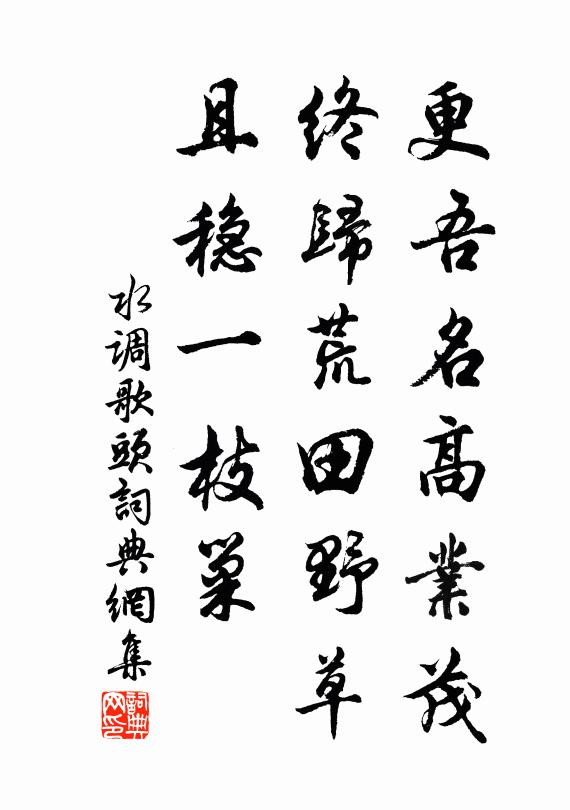 更吾名高業茂
終歸荒田野草
且穩一枝巢
水调歌頭詞典網集
詞典网印